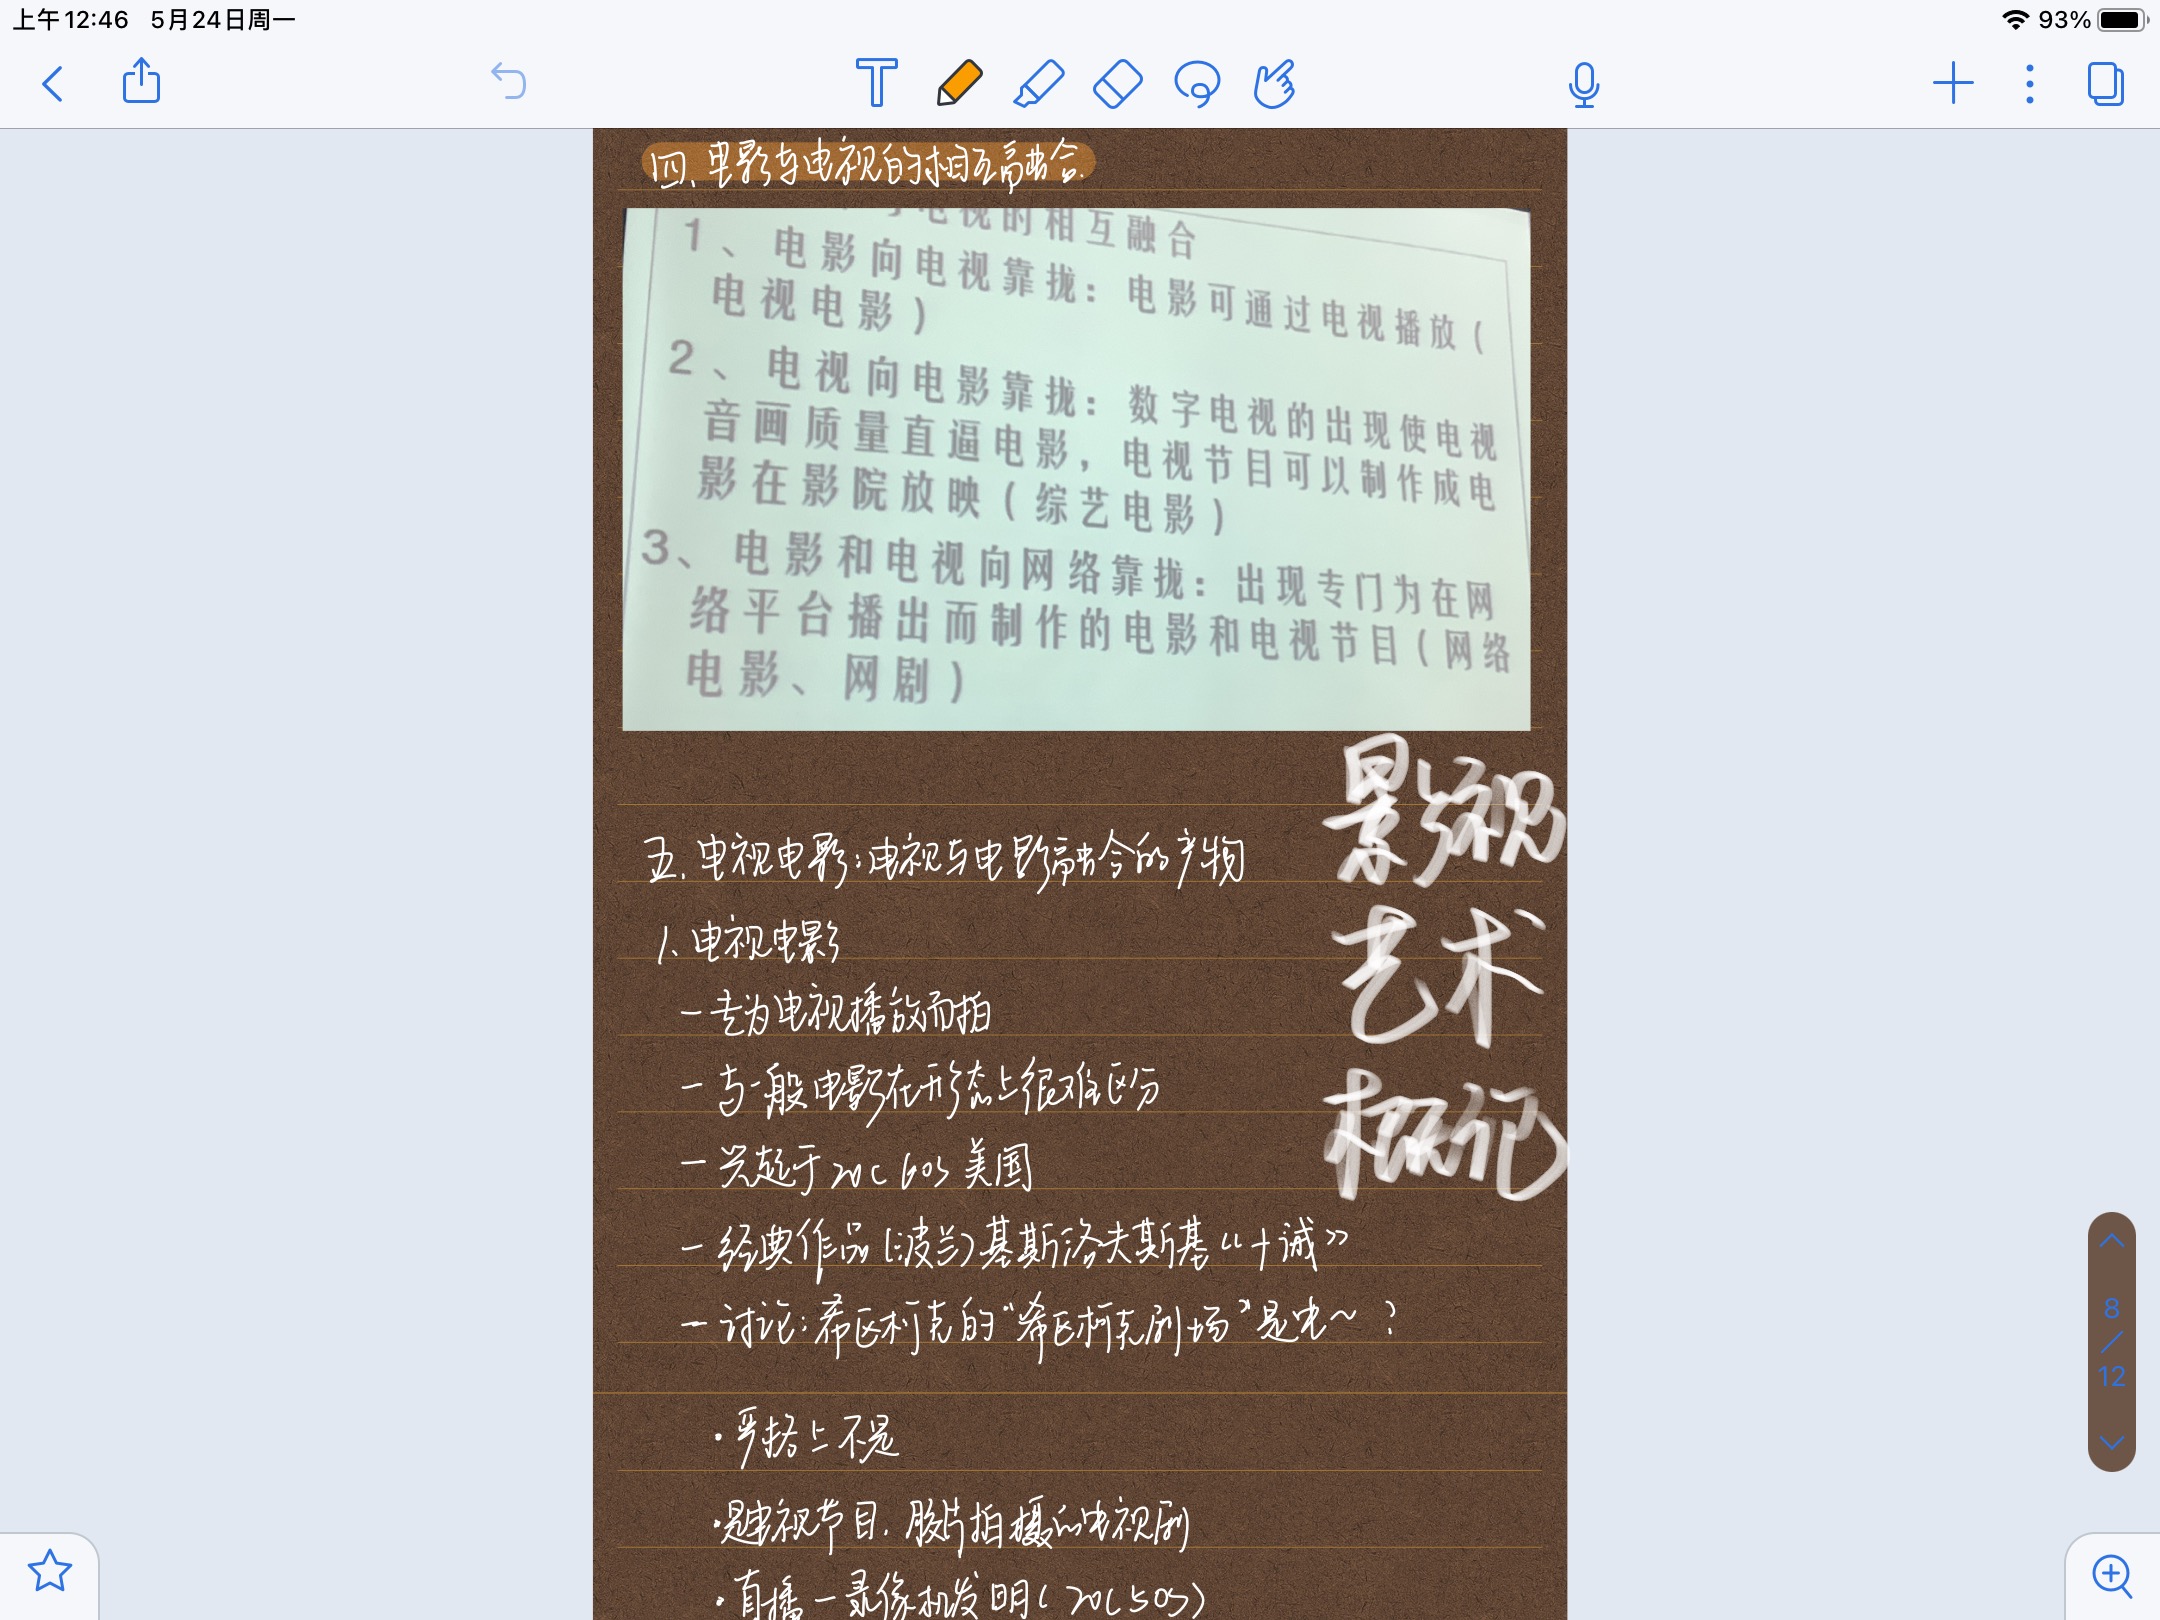 上午12:46 5月24日周一
93%
四、电影与电视的相互融合
与电视的相互融合
1、电影向电视靠拢：电影可通过电视播放（
电视电影）
2、电视向电影靠拢：数字电视的出现使电视
音画质量直逼电影，电视节目可以制作成电
影在影院放映（综艺电影）
3、电影和电视向网络靠拢：出现专门为在网
络平台播出而制作的电影和电视节目（网络
电影、网剧）
影视
艺术
概记
五、电视电影：电视与电影融合的产物
1、电视电影
- 专为电视播放而拍
- 与一般电影在形态上很难区分
- 兴起于20C 60s 美国
- 经典作品（波兰）基斯洛夫斯基《十诫》
- 讨论：希区柯克的“希区柯克剧场”是电～？
·严格上不是
·是电视节目．胶片拍摄的电视剧
·直播－录像机发明（20C50s）
8
/
12